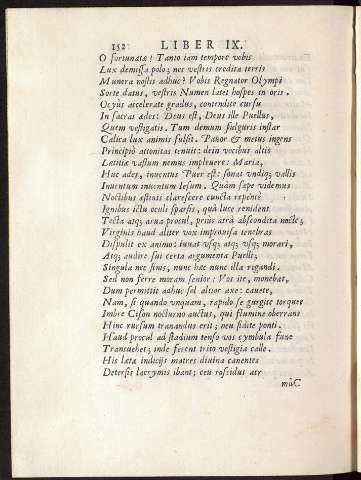 152 LIBER IX.
O fortunatæ! Tanto iam tempore vobis
Lux demissa polo; nec vestris credita terris
Munera nostis adhuc? Vobis Regnator Olympi
Sorte datus, vestris Numen latet hospes in oris.
Ocyùs accelerate gradus, contendite cursu
In sacras ædes: Deus est, Deus ille Puellus,
Quem vestigatis. Tum demum fulguris instar
Cælica lux animis fulsit. Pauor & metus ingens
Principiò attonitas tenuit: dein vocibus altis
Lætitiæ vastum nemus impleuere: Maria,
Huc ades, inuentus Puer est: sonat vndiq; vallis
Inuentum inuentum Iesum. Quàm sæpe videmus
Noctibus æstiuis clarescere cuncta repentè
Ignibus ictu oculi sparsis, quâ luce renident
Tecta atq; arua procul, prius atrâ abscondita nocte;
Virginis haud aliter vox improuisa tenebras
Dispulit ex animo: iuuat vsq; atq; vsq; morari,
Atq; audire sui certa argumenta Puelli;
Singula nec finis, nunc hæc nunc illa rogandi.
Sed non ferre moram senior: Vos ite, monebat,
Dum permittit adhuc sol altior axe: cauete,
Nam, si quando vnquam, rapido se gurgite torquet
Imbre Cison nocturno auctus, qui flumine oberrans
Hinc rursum tranandus erit; neu fidite ponti.
Haud procul ad stadium tenso vos cymbula fune
Transuehet; inde ferent trito vestigia calle.
His læta indicijs matres diuina canentes
Detersis lacrymis ibant; ceu roscidus aer